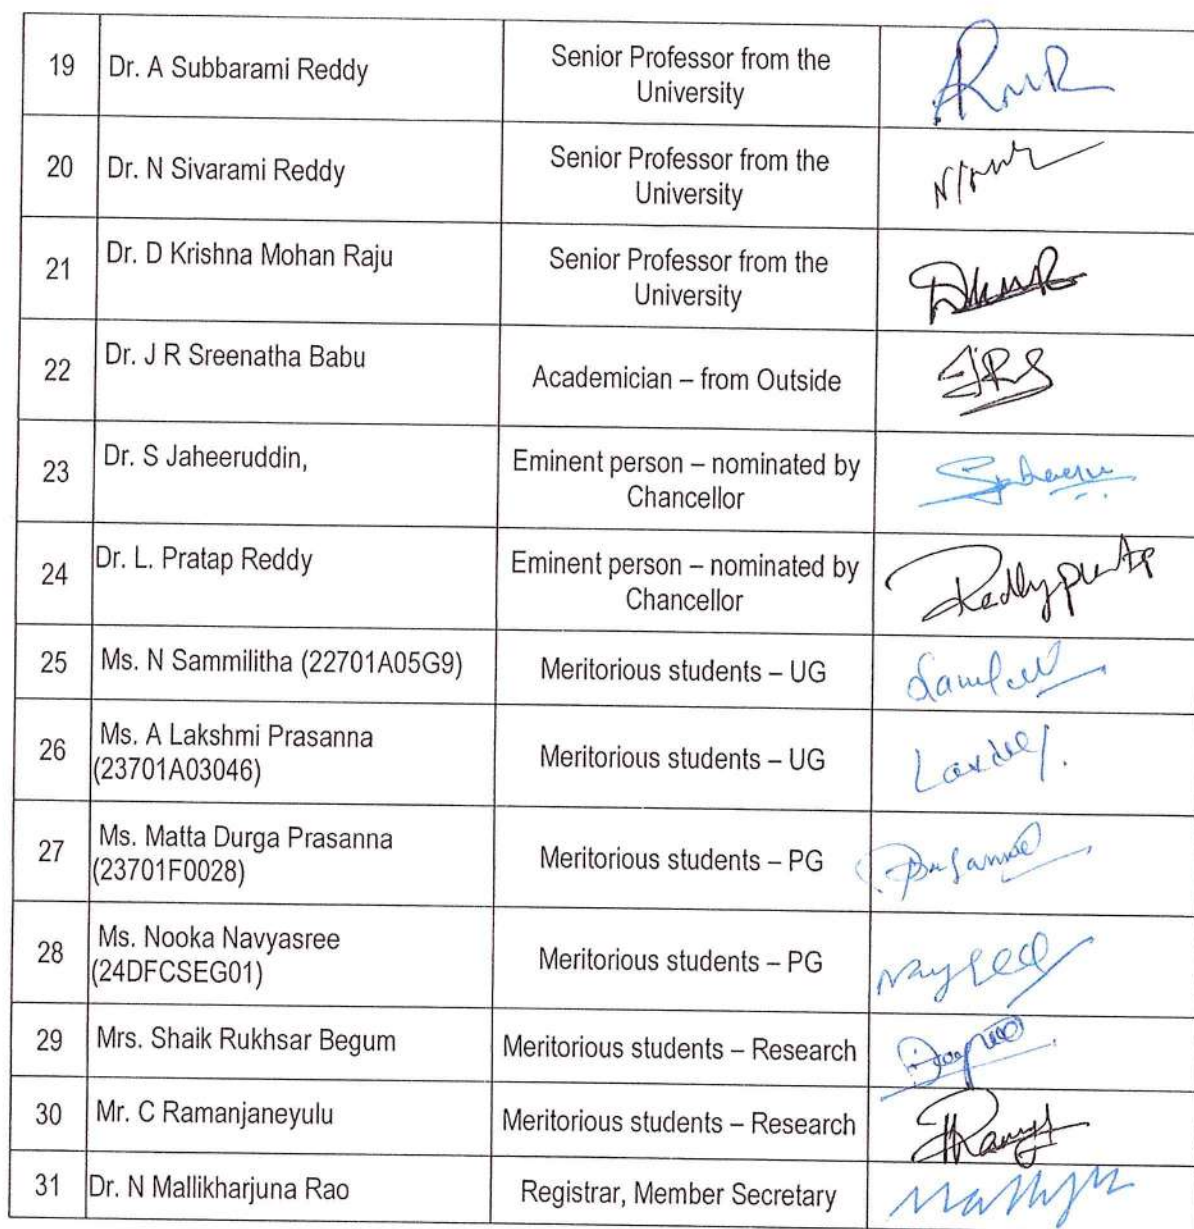 19 Dr. A Subbarami Reddy Senior Professor from the
University
20 Dr. N Sivarami Reddy Senior Professor from the
University
21 Dr. D Krishna Mohan Raju Senior Professor from the
University
22 Dr. J R Sreenatha Babu Academician – from Outside JRS
23 Dr. S Jaheeruddin, Eminent person – nominated by
Chancellor
24 Dr. L. Pratap Reddy Eminent person – nominated by
Chancellor
25 Ms. N Sammilitha (22701A05G9) Meritorious students – UG
26 Ms. A Lakshmi Prasanna
(23701A03046) Meritorious students – UG
27 Ms. Matta Durga Prasanna
(23701F0028) Meritorious students – PG
28 Ms. Nooka Navyasree
(24DFCSEG01) Meritorious students – PG
29 Mrs. Shaik Rukhsar Begum Meritorious students – Research
30 Mr. C Ramanjaneyulu Meritorious students – Research
31 Dr. N Mallikharjuna Rao Registrar, Member Secretary